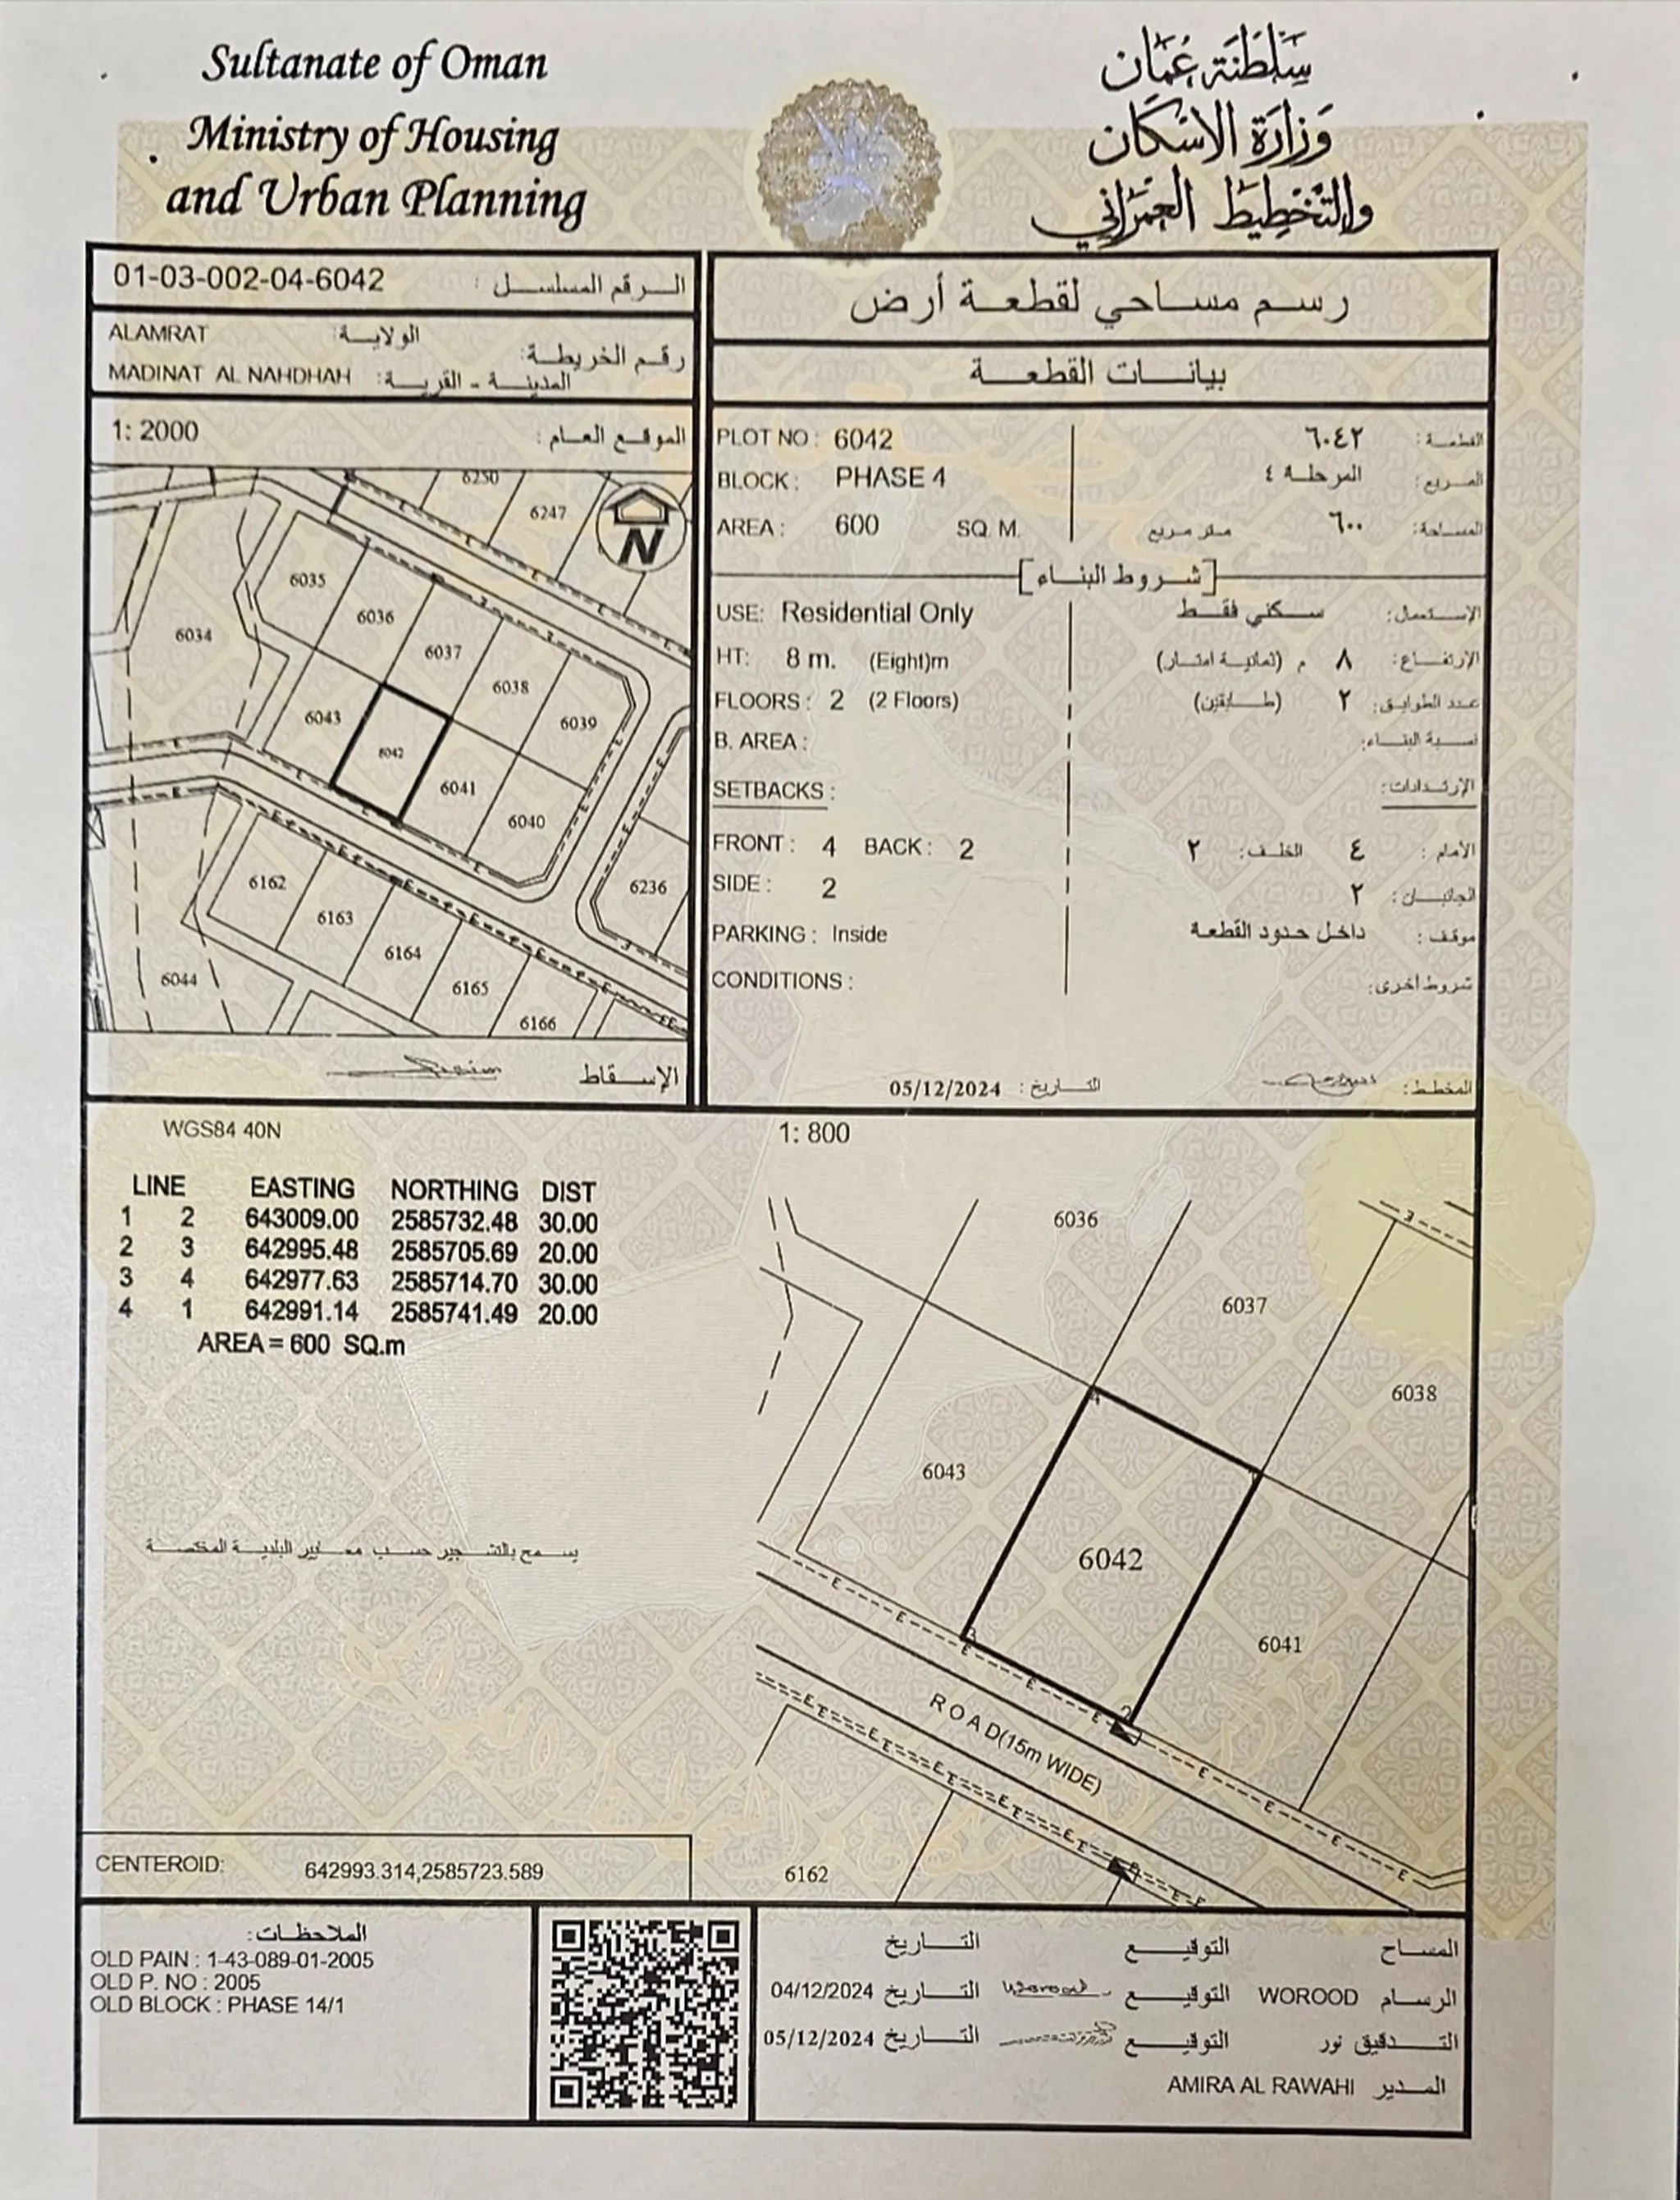 Sultanate of Oman
Ministry of Housing
and Urban Planning
سلطنة عمان
وزارة الاسكان
والتخطيط العمراني
01-03-002-04-6042 الرقم المسلسل :
ALAMRAT الولاية:
رقم الخريطة:
MADINAT AL NAHDHAH المدينة - القرية:
1: 2000 الموقع العام :
6250
6247
N
6035
6036
6034
6037
6038
6043
6039
6042
6041
6040
6162
6236
6163
6164
6044
6165
6166
الإسقاط
رسم مساحي لقطعة أرض
بيانات القطعة
PLOT NO : 6042 ٦٠٤٢ القطعة :
BLOCK : PHASE 4 المرحلة ٤ المربع :
AREA : 600 SQ. M. متر مربع ٦٠٠ المساحة:
[شروط البناء]
USE: Residential Only سكني فقط الإستعمال:
HT: 8 m. (Eight)m ٨ م (ثمانية امتار) الإرتفاع:
FLOORS : 2 (2 Floors) ٢ (طابقين) عدد الطوابق:
B. AREA : نسبة البناء:
SETBACKS : الإرتدادات:
FRONT : 4 BACK : 2 الأمام : ٤ الخلف: ٢
SIDE : 2 ٢ الجانبان :
PARKING : Inside داخل حدود القطعة موقف :
CONDITIONS : شروط اخرى:
05/12/2024 التاريخ : المخطط :
WGS84 40N
1: 800
LINE EASTING NORTHING DIST
1 2 643009.00 2585732.48 30.00
2 3 642995.48 2585705.69 20.00
3 4 642977.63 2585714.70 30.00
4 1 642991.14 2585741.49 20.00
AREA = 600 SQ.m
6036
6037
6038
4
1
6043
6042
6041
3
2
ROAD(15m WIDE)
6162
يسمح بالتشجير حسب معايير البلدية المختصة
CENTEROID: 642993.314,2585723.589
الملاحظات:
OLD PAIN : 1-43-089-01-2005
OLD P. NO : 2005
OLD BLOCK : PHASE 14/1
المساح التوقيع التاريخ
الرسام WOROOD التوقيع Worood التاريخ 04/12/2024
التدقيق نور التوقيع التاريخ 05/12/2024
المدير AMIRA AL RAWAHI